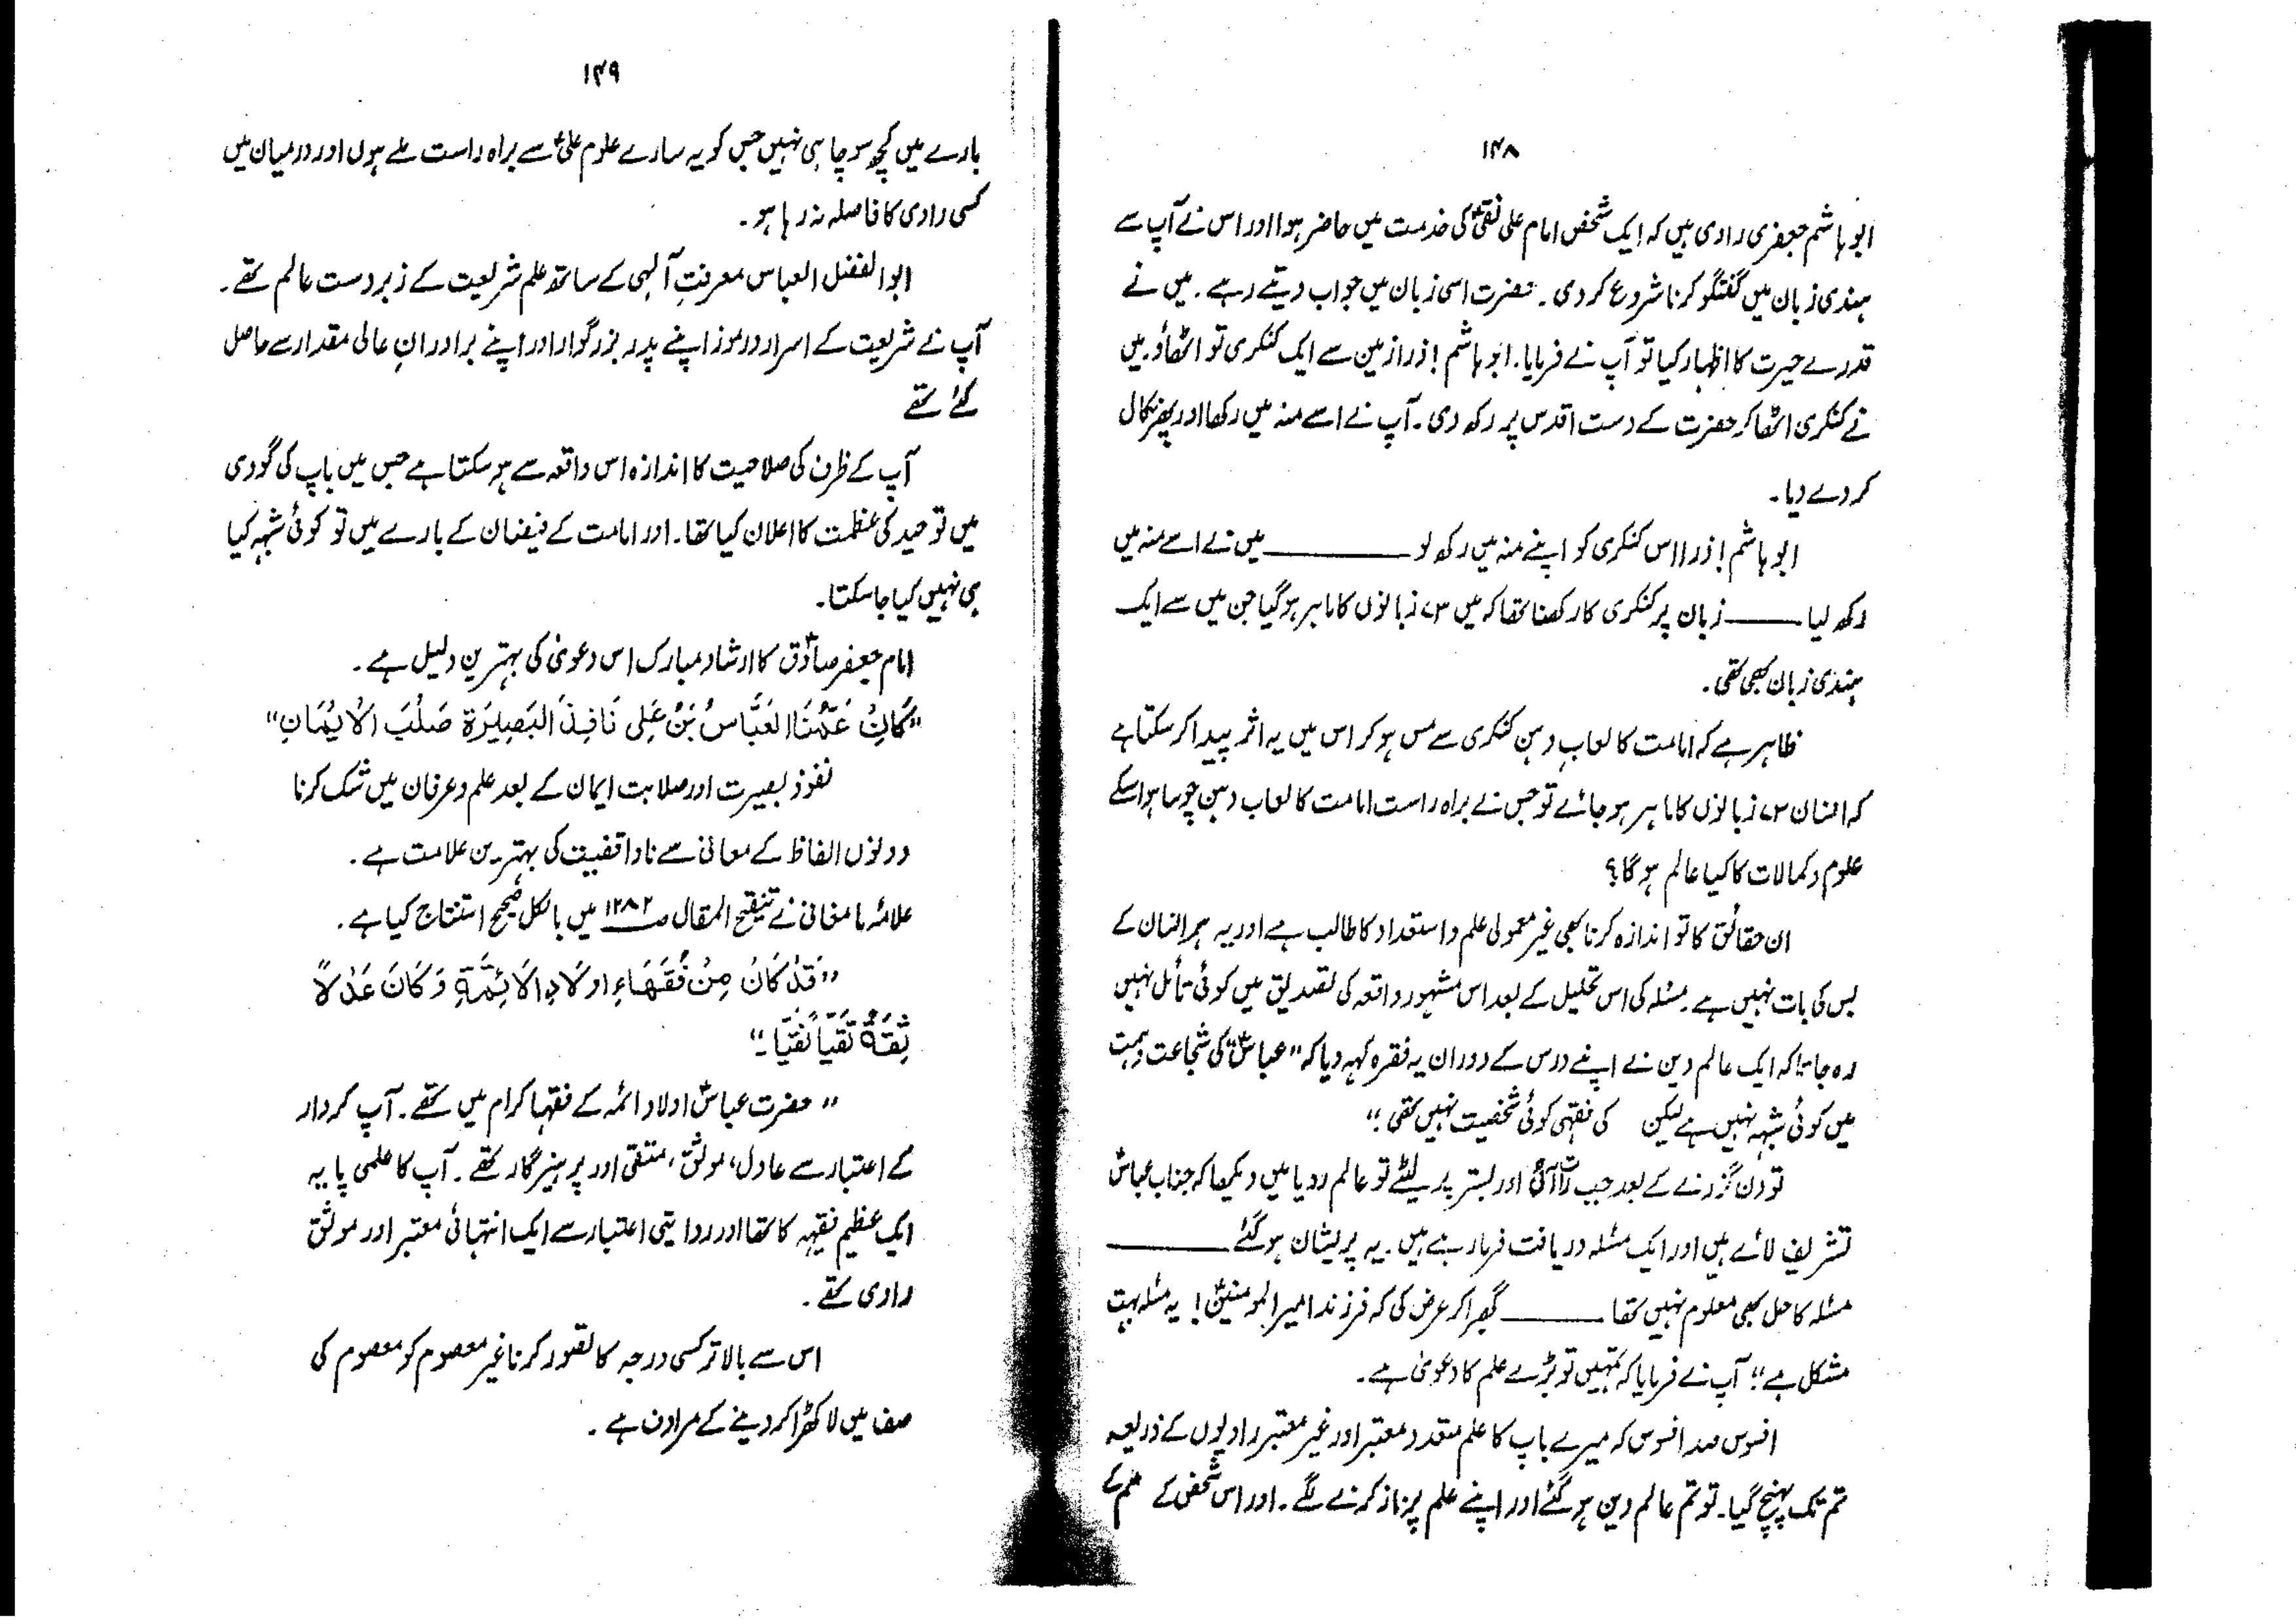 ۱۴۸
ابو ہاشم جعفری راوی ہیں کہ ایک شخص امام علی نقیؑ کی خدمت میں حاضر ہوا اور اس نے آپ سے
ہندی زبان میں گفتگو کرنا شروع کر دی۔ حضرت اسی زبان میں جواب دیتے رہے۔ میں نے
قدرے حیرت کا اظہار کیا تو آپ نے فرمایا۔ ابو ہاشم! ذرا زمین سے ایک کنکری تو اٹھاؤ۔ میں
نے کنکری اٹھا کر حضرت کے دست اقدس پر رکھ دی۔ آپ نے اسے منہ میں رکھا اور پھر نکال
کر دے دیا۔
ابو ہاشم! ذرا اس کنکری کو اپنے منہ میں رکھ لو ــــــــ میں نے اسے منہ میں
رکھ لیا ــــــــ زبان پر کنکری کا رکھنا تھا کہ میں ۷۳ زبانوں کا ماہر ہو گیا جن میں سے ایک
ہندی زبان بھی تھی۔
ظاہر ہے کہ امامت کا لعابِ دہن کنکری سے مس ہو کر اس میں یہ اثر پیدا کر سکتا ہے
کہ انسان ۷۳ زبانوں کا ماہر ہو جائے تو جس نے براہ راست امامت کا لعاب دہن چوسا ہو اسکے
علوم و کمالات کا کیا عالم ہو گا؟
ان حقائق کا تو اندازہ کرنا بھی غیر معمولی علم و استعداد کا طالب ہے اور یہ ہر انسان کے
بس کی بات نہیں ہے۔ مسئلہ کی اس تحلیل کے بعد اس مشہور واقعہ کی تصدیق میں کوئی تأمل نہیں
رہ جاتا کہ ایک عالم دین نے اپنے درس کے دوران یہ فقرہ کہہ دیا کہ "عباسؑ کی شجاعت و ہمت
میں کوئی شبہہ نہیں ہے لیکن کی فقہی کوئی شخصیت نہیں تھی"؛
تو دن گزرنے کے بعد جب رات آئی اور بستر پر لیٹے تو عالم رویا میں دیکھا کہ جناب عباسؑ
تشریف لائے ہیں اور ایک مسئلہ دریافت فرما رہے ہیں۔ یہ پریشان ہو گئے ــــــــ
مسئلہ کا حل بھی معلوم نہیں تھا ــــــــ گھبرا کر عرض کی کہ فرزند امیر المومنینؑ! یہ مسئلہ بہت
مشکل ہے"؛ آپ نے فرمایا کہ تمہیں تو بڑے علم کا دعویٰ ہے۔
افسوس صد افسوس کہ میرے باپ کا علم متعدد معتبر اور غیر معتبر راویوں کے ذریعہ
تم تک پہنچ گیا۔ تو تم عالم دین ہو گئے اور اپنے علم پر ناز کرنے لگے۔ اور اس شخص کے علم کے
۱۴۹
بارے میں کچھ سوچا ہی نہیں جس کو یہ سارے علوم علیؑ سے براہ راست ملے ہوں اور درمیان میں
کسی راوی کا فاصلہ نہ رہا ہو۔
ابوالفضل العباس معرفتِ آلٰہی کے ساتھ علم شریعت کے زبردست عالم تھے۔
آپ نے شریعت کے اسرار و رموز اپنے پدر بزرگوار اور اپنے برادرانِ عالی مقدار سے حاصل
کئے تھے
آپ کے ظرف کی صلاحیت کا اندازہ اس واقعہ سے ہو سکتا ہے جس میں باپ کی گودی
میں توحید کی عظمت کا اعلان کیا تھا۔ اور امامت کے فیضان کے بارے میں تو کوئی شبہہ کیا
ہی نہیں کیا جا سکتا۔
امام جعفر صادقؑ کا ارشاد مبارک اس دعویٰ کی بہترین دلیل ہے۔
"كَانَ عَمُّنَا الْعَبَّاسُ بْنُ عَلِی نَافِذَ الْبَصِيْرَةِ صَلْبَ الْاِيْمَانِ"
نفوذ بصیرت اور صلابت ایمان کے بعد علم و عرفان میں شک کرنا
دونوں الفاظ کے معانی سے ناواقفیت کی بہترین علامت ہے۔
علامہ مامقانی نے تنقیح المقال صـ ۱۲۸۲ میں بالکل صحیح استنتاج کیا ہے۔
"قَدْ كَانَ مِنْ فُقَهَاءِ اَوْلَادِ الْاَئِمَّةِ وَكَانَ عَدْلًا
ثِقَةً تَقِيًّا نَقِيًّا۔"
"حضرت عباسؑ اولاد ائمہ کے فقہا کرام میں تھے۔ آپ کردار
کے اعتبار سے عادل، موثق، متقی اور پرہیزگار تھے۔ آپ کا علمی پایہ
ایک عظیم فقیہہ کا تھا اور روایتی اعتبار سے ایک انتہائی معتبر اور موثق
راوی تھے۔
اس سے بالا تر کسی درجہ کا تصور کرنا غیر معصوم کو معصوم کی
صف میں لا کھڑا کر دینے کے مرادف ہے۔